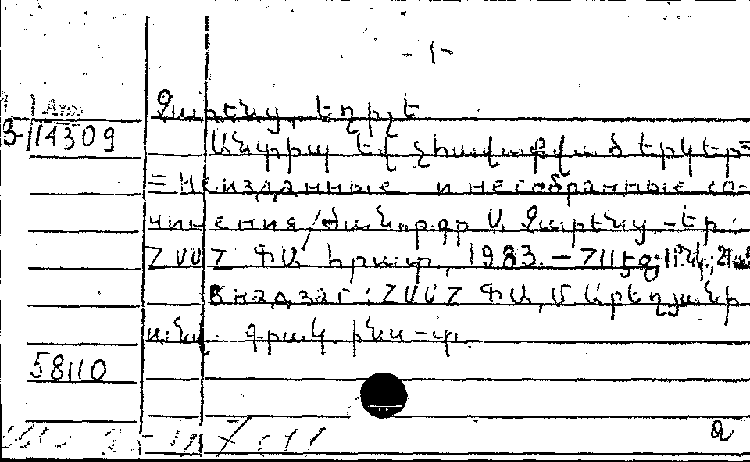 - 1 -
Չարենց, Եղիշե
3-14309
Անտիպ եվ չհավաքված երկեր
= Неизданные и несобранные со-
чинения / Ծանոթգր. Ա. Չարենց. - Եր.:
ՀՍՍՀ ԳԱ հրատ., 1983. - 711 էջ;
В надзаг: ՀՍՍՀ ԳԱ, Մ. Աբեղյանի
անվ. գրակ. ինս-տ.
58110